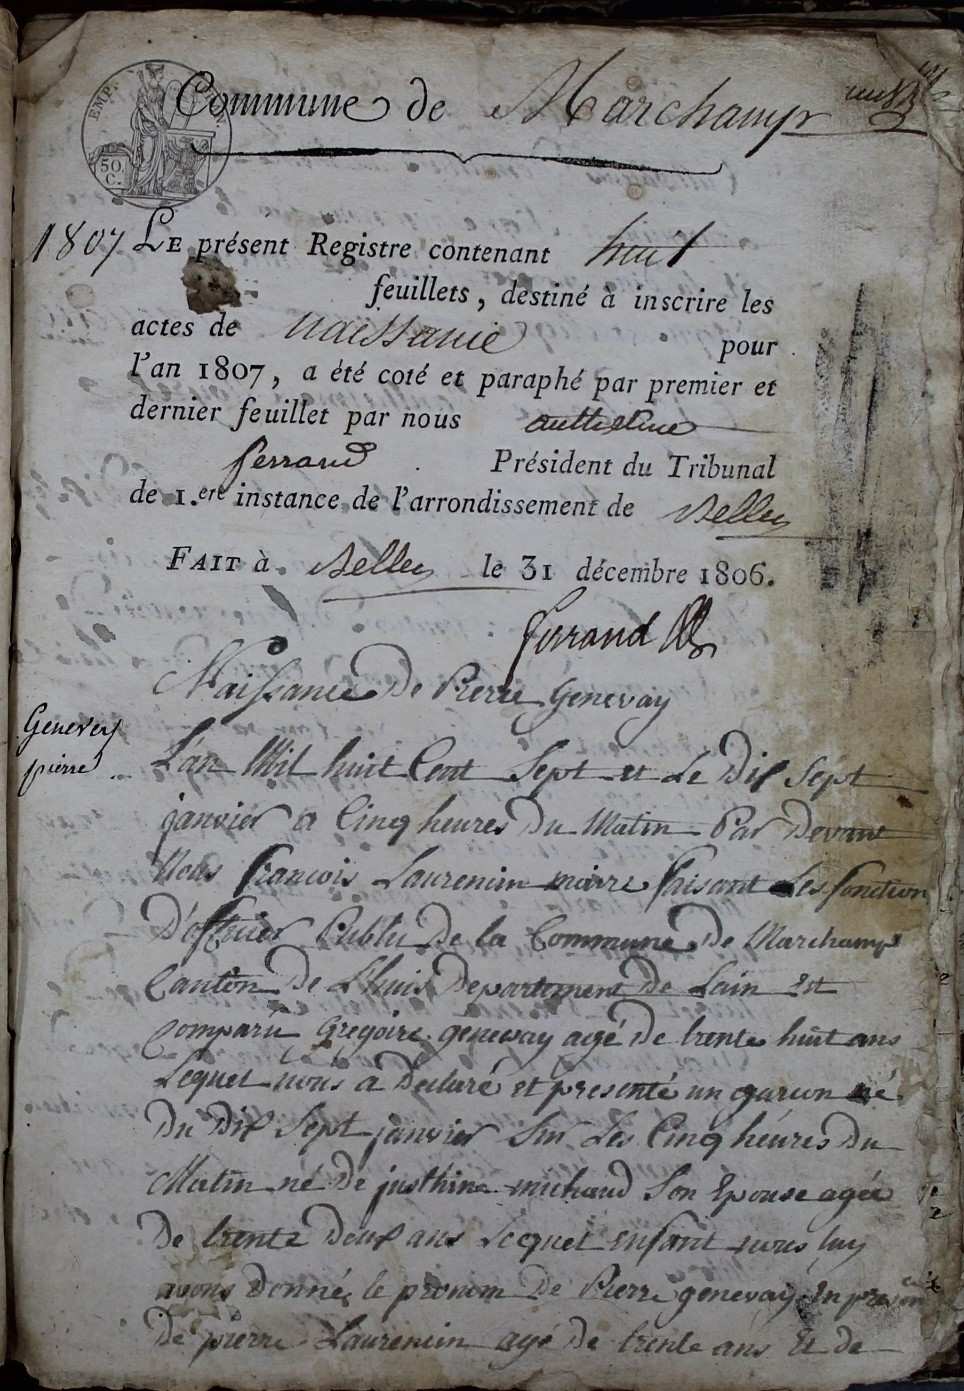 EMP.
50
C.
Commune de Marchamp
1807 LE présent Registre contenant huit
feuillets, destiné à inscrire les
actes de naissance pour
l'an 1807, a été coté et paraphé par premier et
dernier feuillet par nous anthelme
ferrand Président du Tribunal
de 1.ere instance de l'arrondissement de Belley
FAIT à Belley le 31 décembre 1806.
ferrand
Naissance De Pierre Genevay
Genevey
pierre
L'an Mil huit Cent Sept et Le Dix Sept
janvier a Cinq heures Du Matin Par Devant
Nous francois Laurencin maire faisant Les fonction
D'officier Public De la Commune De Marchamp
Canton De L'huis Departement De Lain Est
Comparu Gregoire genevay agé De trente huit ans
Lequel nous a Declaré et presenté un garcon né
Du Dix Sept janvier Sur Les Cinq heures Du
Matin né De justhine michaud Son Epouse agée
De trente Deux ans Lequel enfant nous luy
avons Donné le pronom De Pierre genevay En presence
De pierre Laurencin agé De trente ans Et de